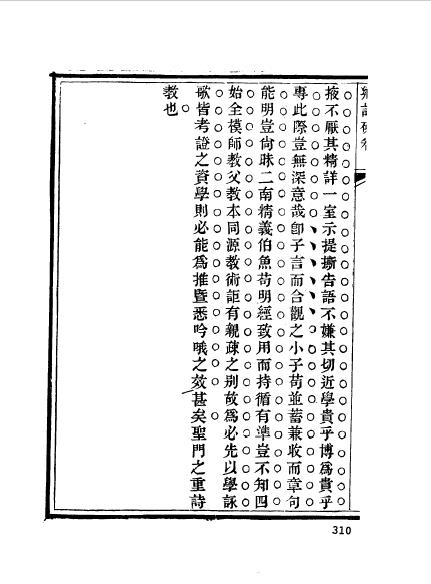 掖不厭其精詳一室示提撕告語不嫌其切近學貴乎博爲貴乎
專此際豈無深意哉卽子言而合觀之小子苟並蓄兼收而章句
能明豈尙昧二南精義伯魚苟明經致用而持循有準豈不知四
始全模師教父教本同源教術詎有親疎之别故爲必先以學詠
歌皆考證之資學則必能爲推暨悉吟哦之效甚矣聖門之重詩
教也
310